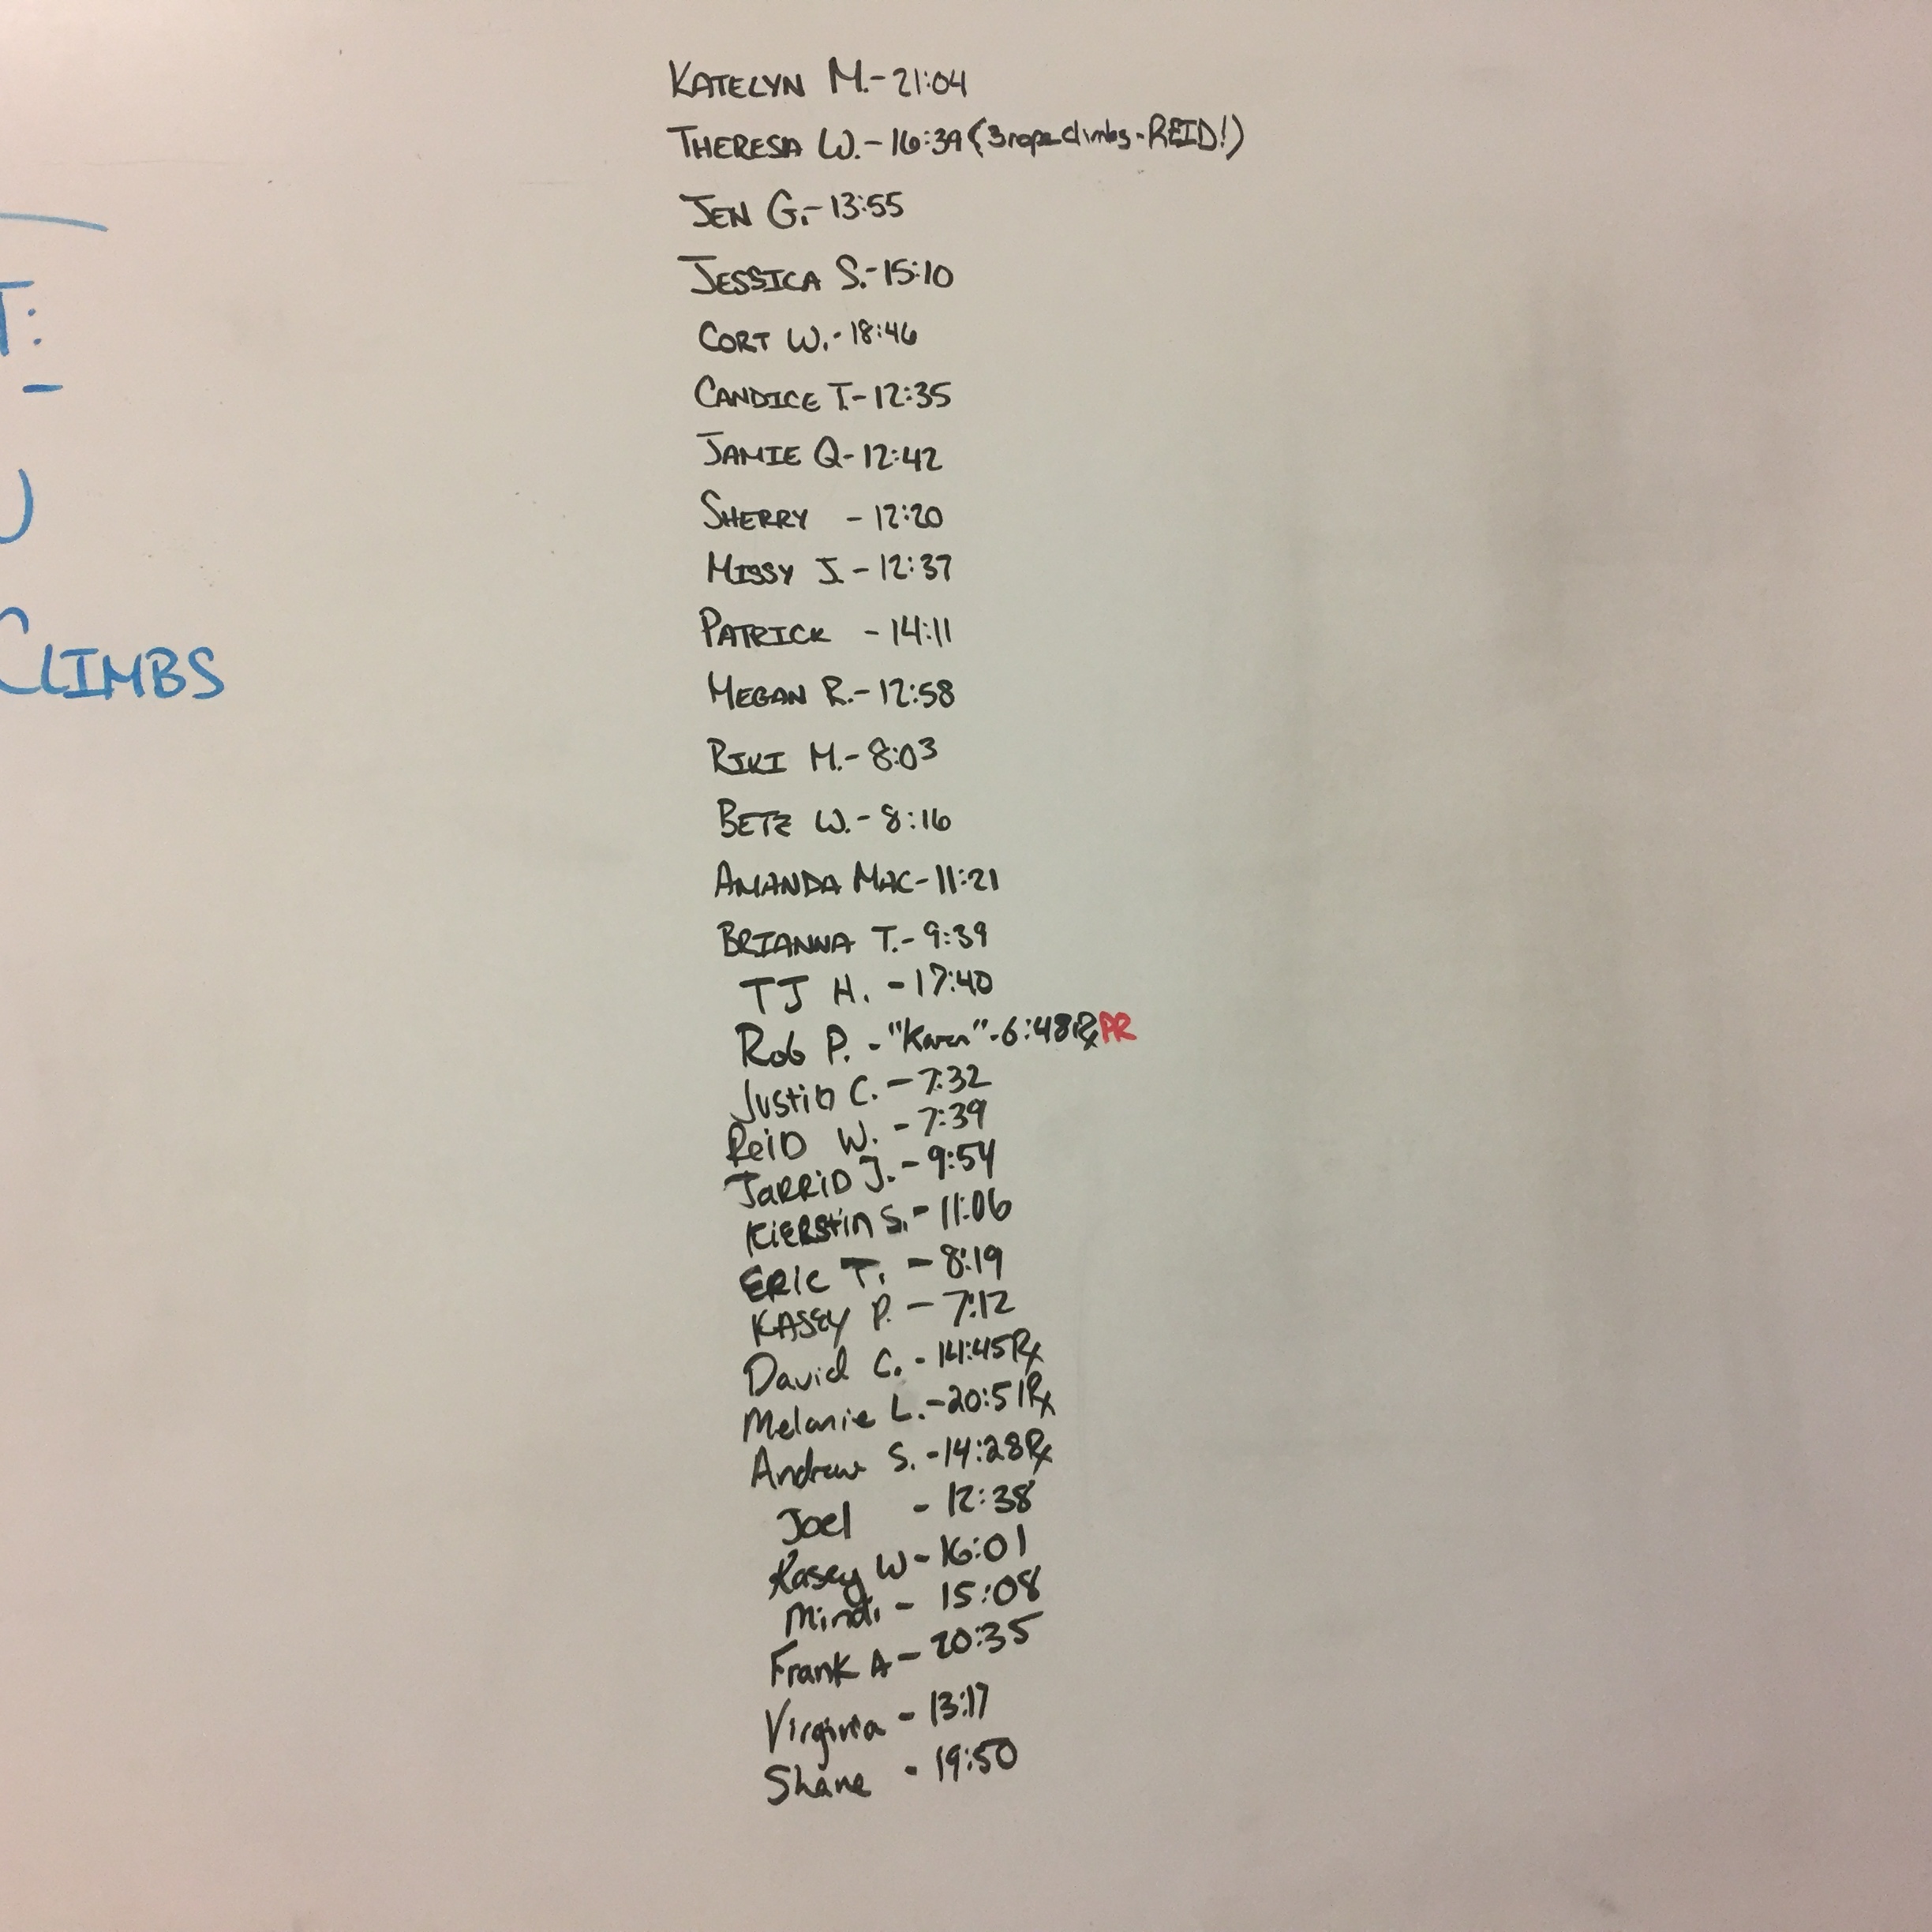 T:
CLIMBS
KATELYN M.- 21:04
THERESA W.- 16:39 (3 rope climbs - REID!)
JEN G.- 13:55
JESSICA S.- 15:10
CORT W.- 18:46
CANDICE T.- 12:35
JAMIE Q- 12:42
SHERRY - 12:20
MISSY J. - 12:37
PATRICK - 14:11
MEGAN R.- 12:58
RIKI M.- 8:03
BETZ W.- 8:16
AMANDA MAC- 11:21
BRIANNA T.- 9:39
TJ H. - 17:40
Rob P. - "Karen" - 6:48 Rx PR
Justin C. - 7:32
ReiD W. - 7:39
JaRRiD J. - 9:54
KiERStin S. - 11:06
ERIC T. - 8:19
KASEY P. - 7:12
David C. - 14:45 Rx
Melanie L. - 20:51 Rx
Andrew S. - 14:28 Rx
Joel - 12:38
Kasey W - 16:01
Mindi - 15:08
Frank A - 20:35
Virginia - 13:17
Shane - 19:50